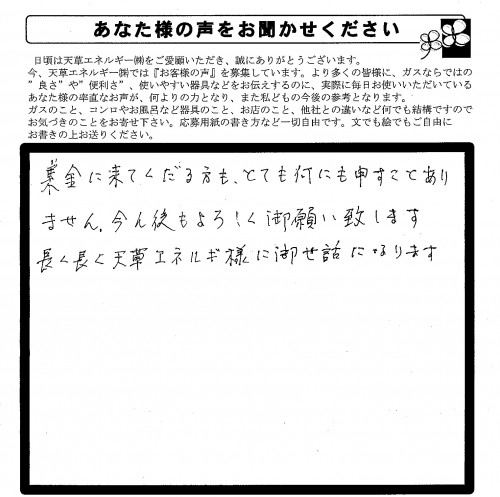 あなた様の声をお聞かせください
日頃は天草エネルギー㈱をご愛顧いただき、誠にありがとうございます。
今、天草エネルギー㈱では『お客様の声』を募集しています。より多くの皆様に、ガスならではの
”良さ”や”便利さ”、使いやすい器具などをお伝えするのに、実際に毎日お使いいただいている
あなた様の率直なお声が、何よりの力となり、また私どもの今後の参考となります。
ガスのこと、コンロやお風呂など器具のこと、お店のこと、他社との違いなど何でも結構ですので
お気づきのことをお寄せ下さい。応募用紙の書き方など一切自由です。文でも絵でもご自由に
お書きの上お送りください。
集金に来てくだる方も、とても何にも申すことあり
ません。今ん後もよろしく御願い致します
長く長く天草エネルギ様に御世話になります